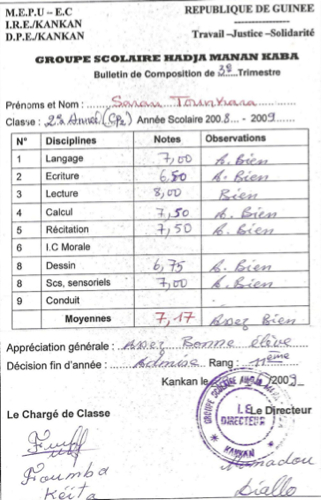 M.E.P.U – E.C REPUBLIQUE DE GUINEE
I.R.E./KANKAN
D.P.E./KANKAN Travail –Justice –Solidarité
GROUPE SCOLAIRE HADJA MANAN KABA
Bulletin de Composition de 3è Trimestre
Prénoms et Nom : Saran Tounkara
Classe : 2è Année (CP2) Année Scolaire 2008 - 2009
N° Disciplines Notes Observations
1 Langage 7,00 A. Bien
2 Ecriture 6,50 A. Bien
3 Lecture 8,00 Bien
4 Calcul 7,50 A. Bien
5 Récitation 7,50 A. Bien
6 I.C Morale
8 Dessin 6,75 A. Bien
8 Scs, sensoriels 7,00 A. Bien
9 Conduit
Moyennes 7,17 Assez Bien
Appréciation générale : Assez Bonne élève
Décision fin d'année : Admise Rang : 11ème
Kankan le 2009
Le Chargé de Classe Le Directeur
GROUPE SCOLAIRE
LE DIRECTEUR
KANKAN
Foumba Mamadou
Keita Diallo